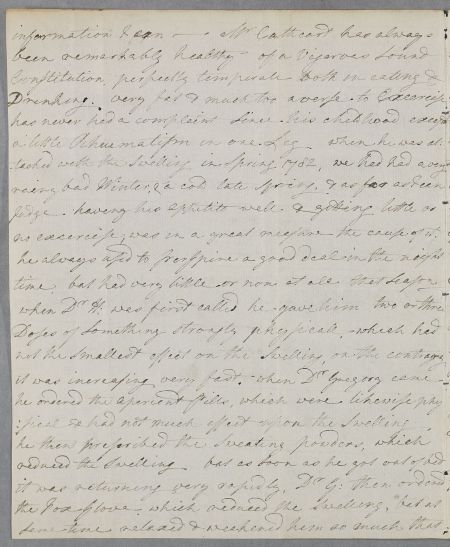 information I can — Mr Cathcart has always
been remarkably healthy - of a Vigorous Sound
Constitution perfectly temperate both in eating &
Drinking. very fat & much too averse to Excercise
has never had a complaint since his childhood except
a little Rheumatism in one Leg when he was at-
tacked with the Swelling in Spring 1782, we had had a very
rainy bad Winter, & a cold late Spring, & as far as I can
Judge having his appetite well & getting little or
no excercise, was in a great measure the cause of it.
he always used to prespire a good deal in the night
time, but had very little or none at all that Season
when Dr H: was first called he gave him two or three
Doses of Something Strongly physicall, which had
not the Smallest effect on the Swelling, on the contrary
it was increasing very fast. when Dr Gregory came
he ordered the aperient pills, which were likewise phy
:sical & had not much effect upon the Swelling
he then prescribed the Sweating powders, which
reduced the Swelling but as soon as he got out of bed
it was returning very rapidly, Dr G: then ordered
the Fox Glove, which reduced the Swelling, but at
same time relaxed & weakend him so much that